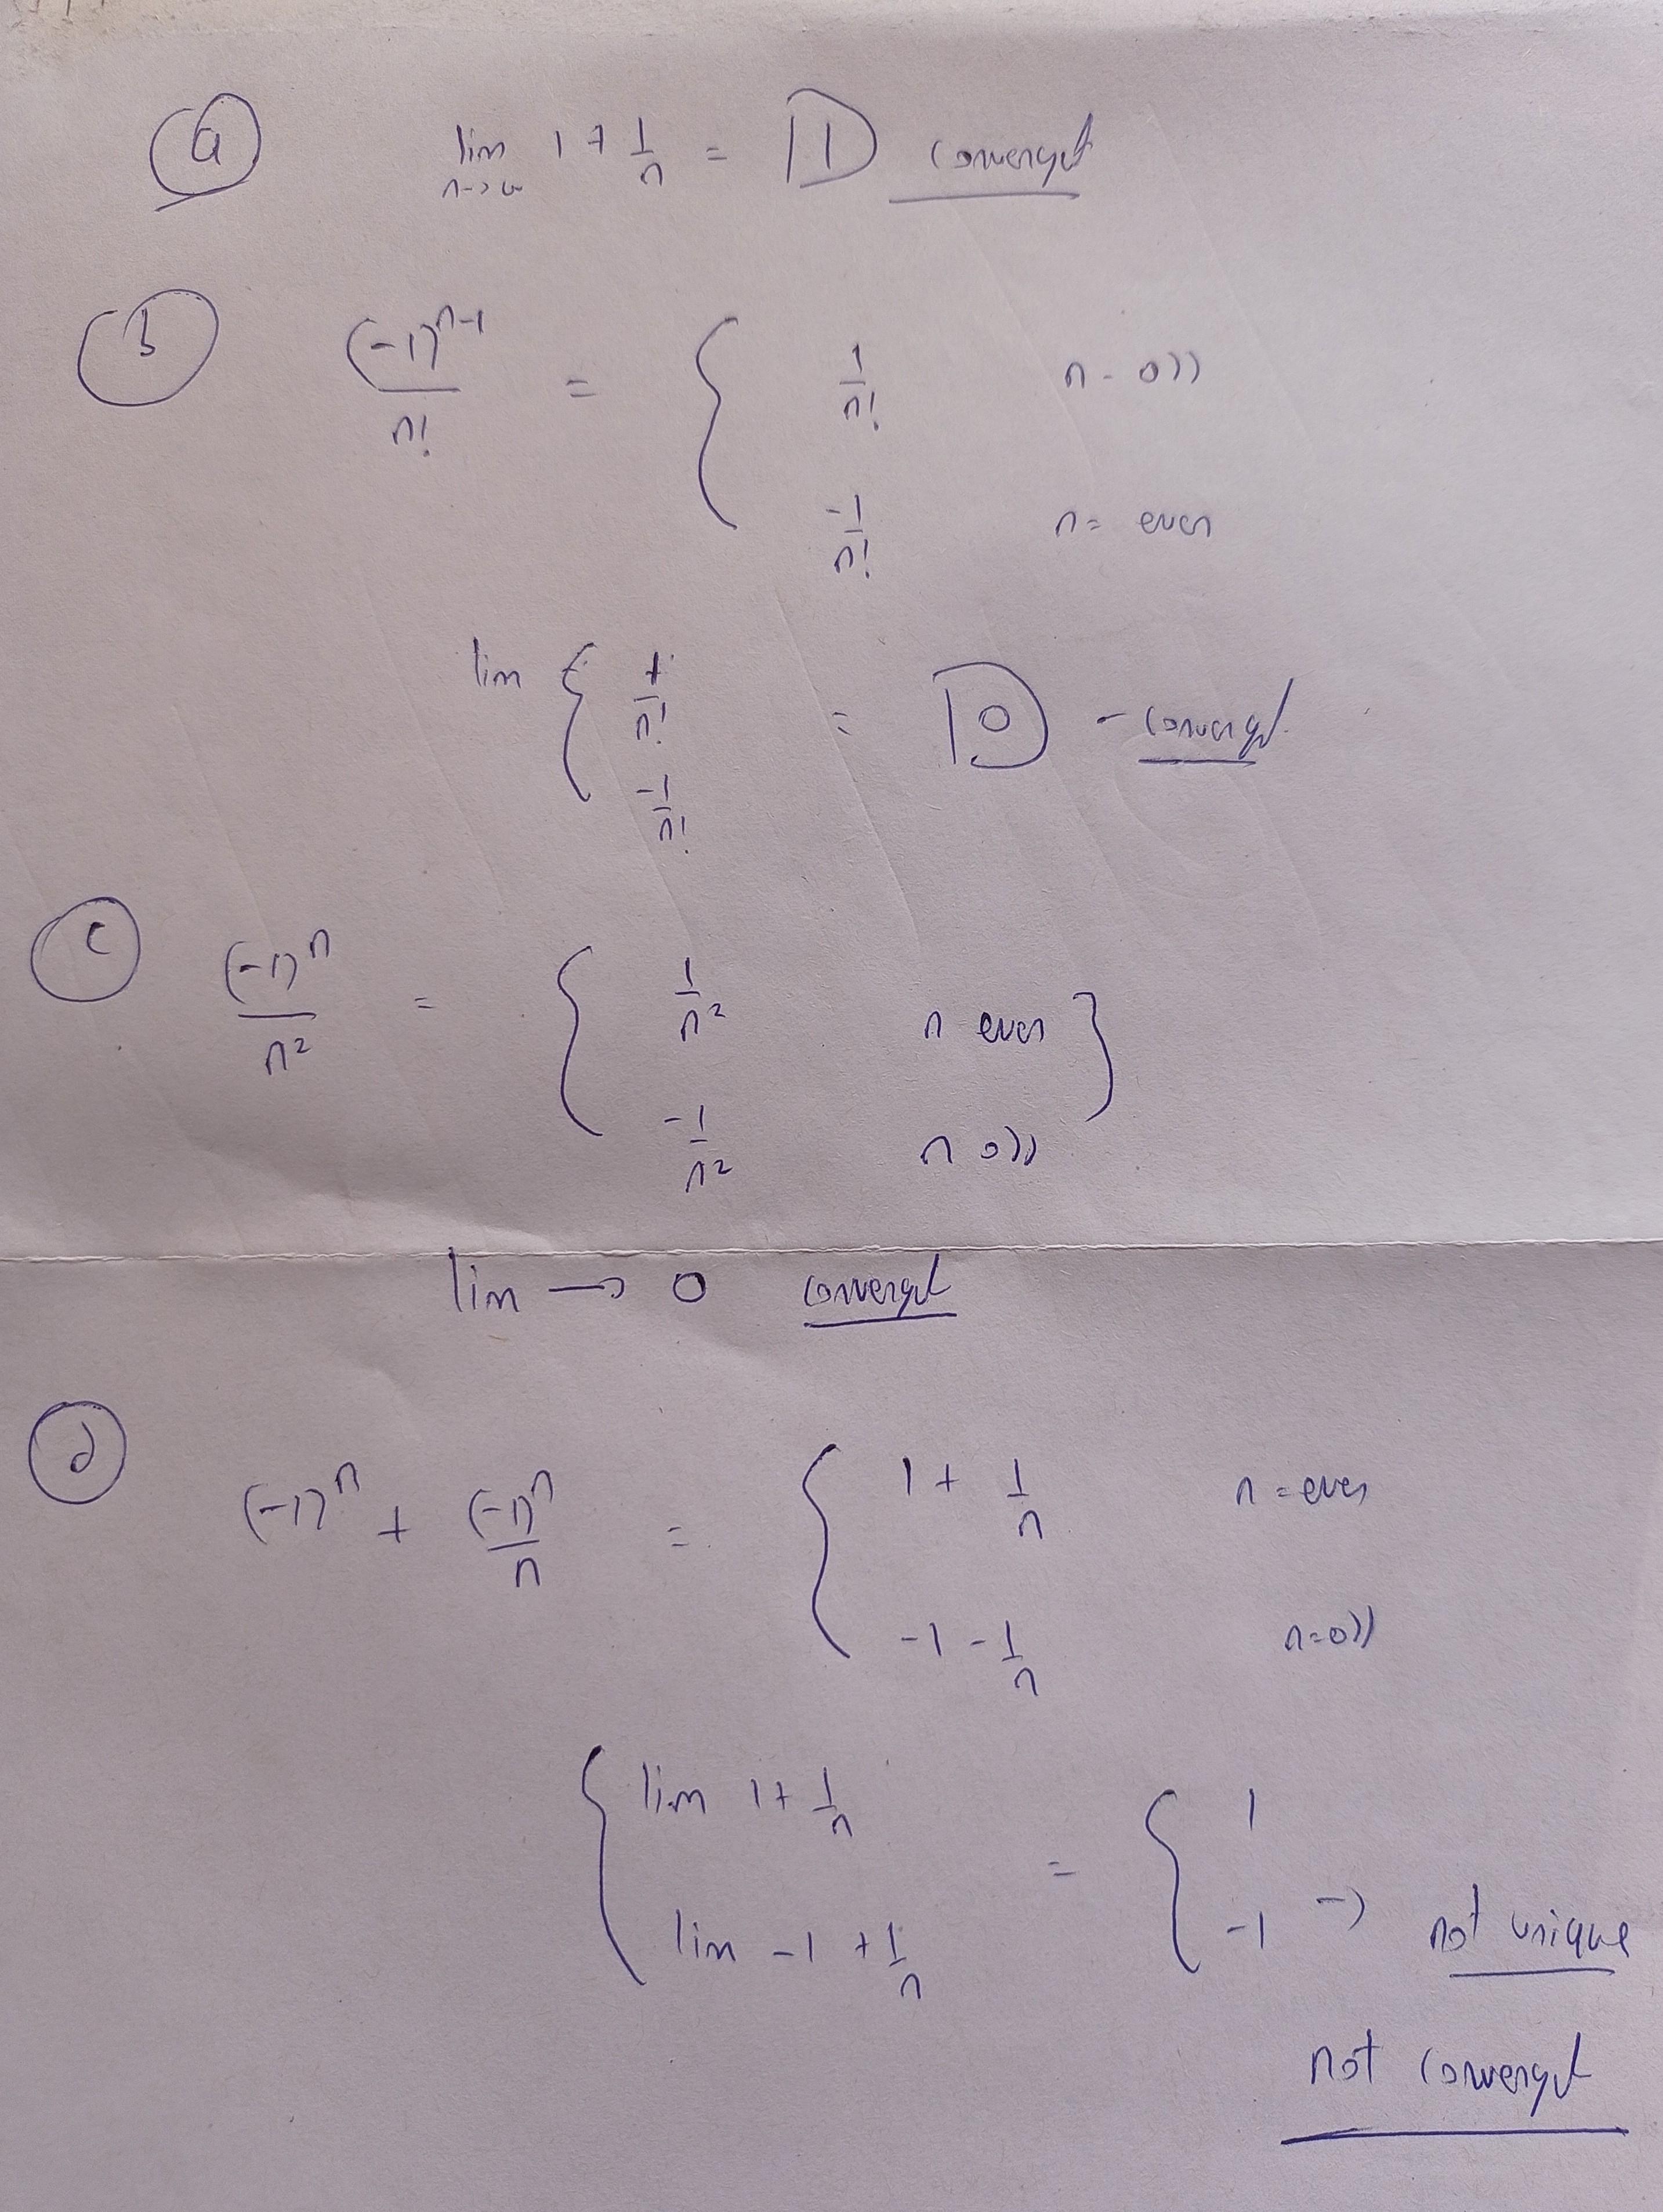 (a) lim n→∞ 1 + 1/n = 1 convergent
(b) (-1)^(n-1) / n! = { 1/n! n - odd
-1/n! n = even
lim { 1/n!
-1/n! = 0 - convergent
(c) (-1)^n / n² = { 1/n² n even }
-1/n² n odd
lim → 0 convergent
(d) (-1)^n + (-1)^n / n = { 1 + 1/n n = even
-1 - 1/n n = odd
{ lim 1 + 1/n = { 1
lim -1 + 1/n -1 → not unique
not convergent